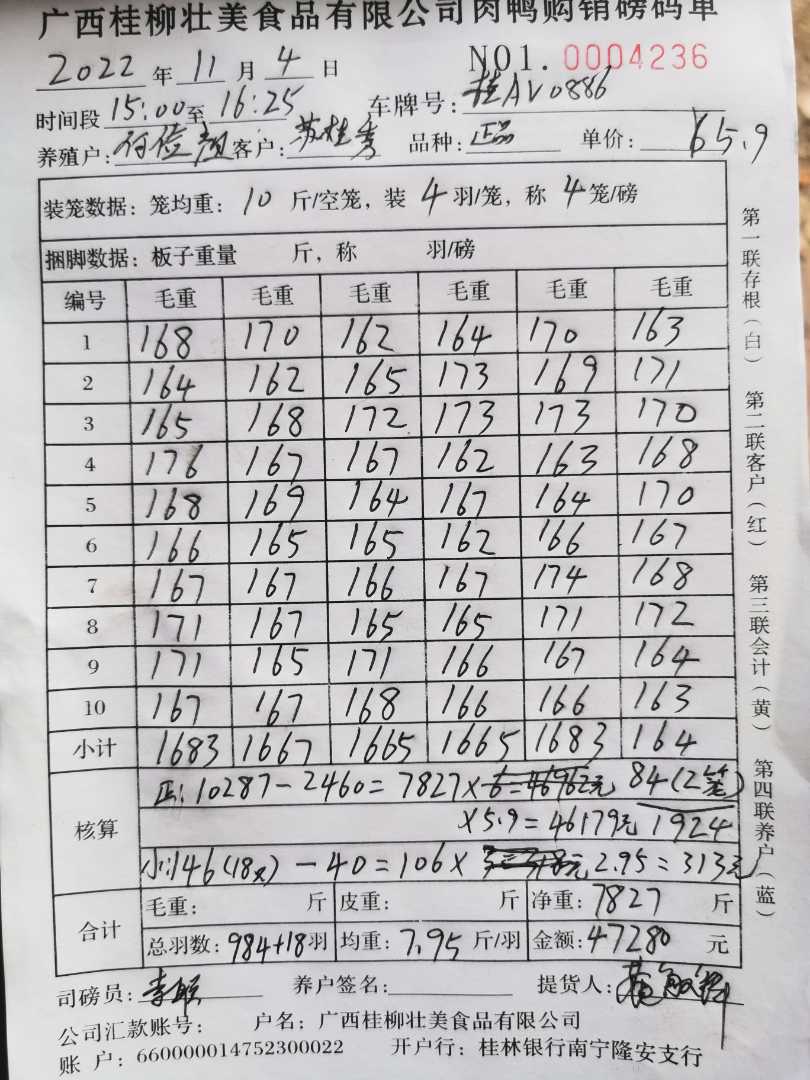 广西桂柳壮美食品有限公司肉鸭购销磅码单
2022 年 11 月 4 日 NO1. 0004236
时间段 15:00 至 16:25 车牌号: 桂AV0886
养殖户: 客户: 苏桂秀 品种: 正品 单价: 65.9
装笼数据: 笼均重: 10 斤/空笼, 装 4 羽/笼, 称 4 笼/磅
捆脚数据: 板子重量 斤, 称 羽/磅
编号 毛重 毛重 毛重 毛重 毛重 毛重
1 168 170 162 164 170 163
2 164 162 165 173 169 171
3 165 168 172 173 173 170
4 176 167 167 162 163 168
5 168 169 164 167 164 170
6 166 165 165 162 166 167
7 167 167 166 167 174 168
8 171 167 165 165 171 172
9 171 165 171 166 167 164
10 167 167 168 166 166 163
小计 1683 1667 1665 1665 1683 164
核算 正: 10287-2460=7827× 6=46962元 84(2笼)
×5.9=46179元 1924
小:146(18只)-40=106× 2.95=313元
合计 毛重: 斤 皮重: 斤 净重: 7827 斤
总羽数: 984+18 羽 均重: 7.95 斤/羽 金额: 47280 元
司磅员: 养户签名: 提货人:
公司汇款账号: 户名: 广西桂柳壮美食品有限公司
账 户: 660000014752300022 开户行: 桂林银行南宁隆安支行
第一联存根(白) 第二联客户(红) 第三联会计(黄) 第四联养户(蓝)